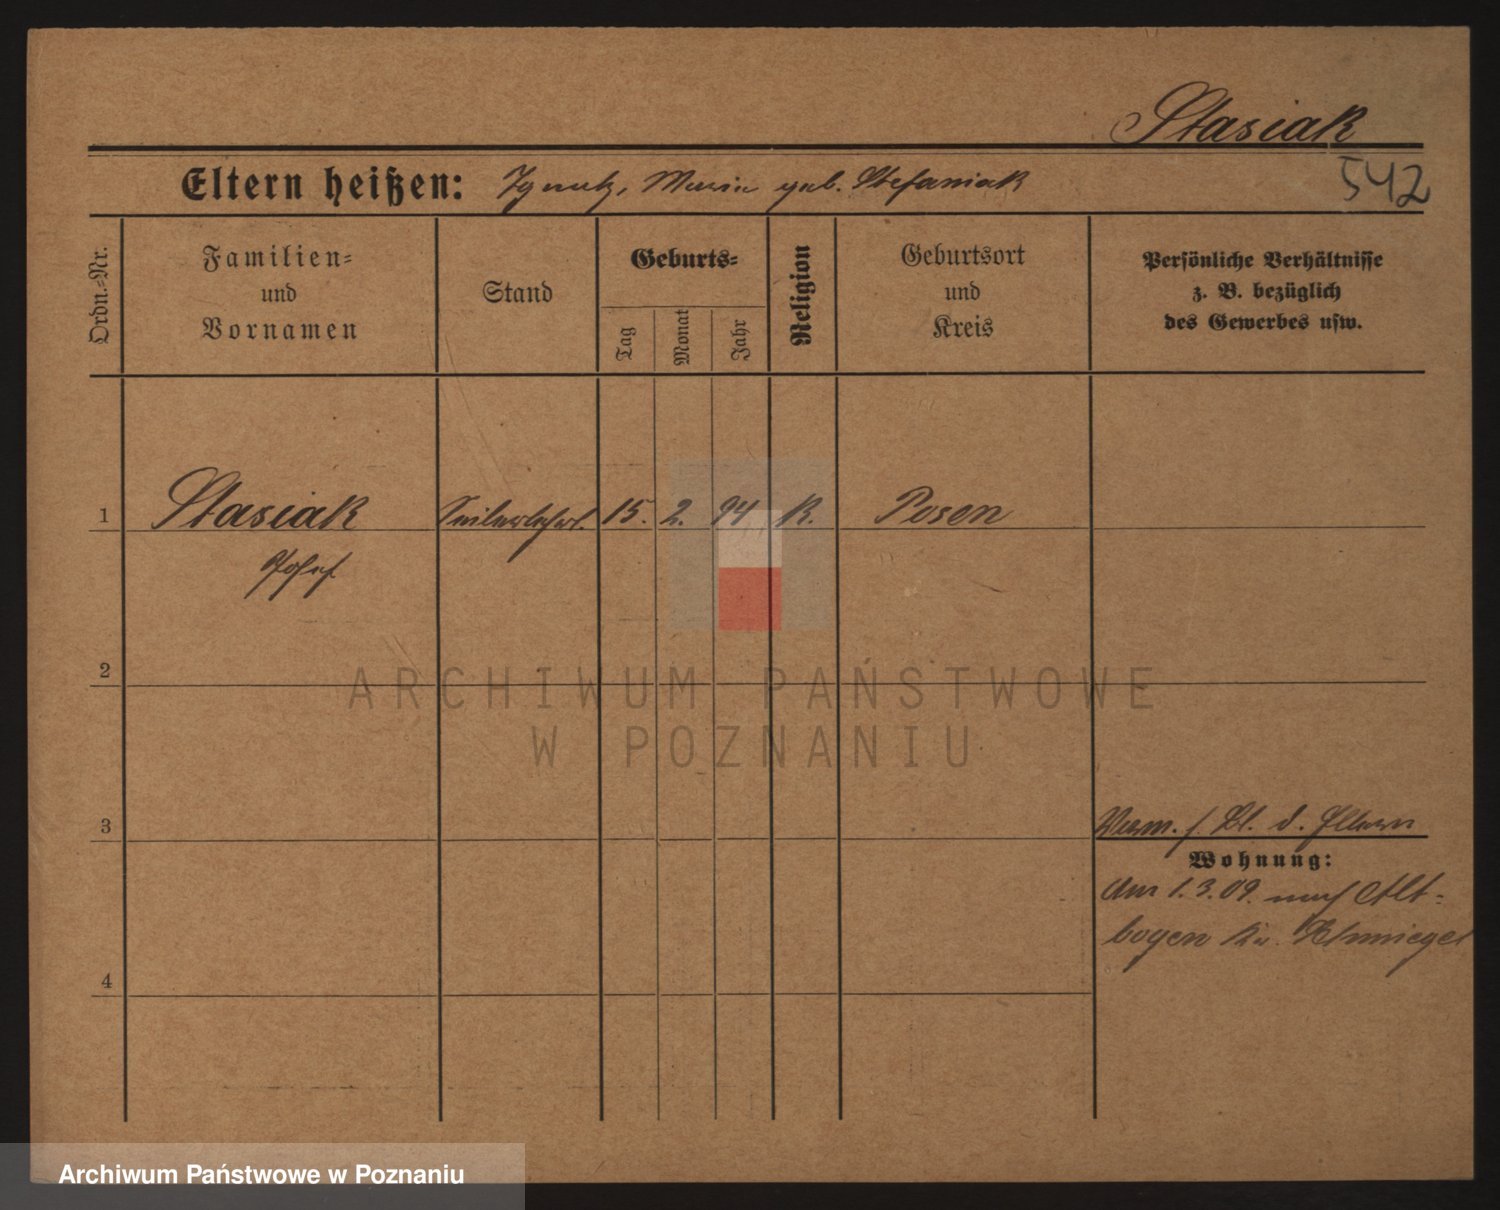 Stasiak
542
Eltern heißen: Ignatz, Maria geb. Stefaniak
Ordn.-Nr.
Familien-
und
Vornamen
Stand
Geburts-
Tag
Monat
Jahr
Religion
Geburtsort
und
Kreis
Persönliche Verhältnisse
z. B. bezüglich
des Gewerbes usw.
1 Stasiak Seilerlehrl. 15. 2. 94 K. Posen
Josef
2
ARCHIWUM PAŃSTWOWE
W POZNANIU
3
Verm. s. Bl. d. Eltern
Wohnung:
Am 1.3.09. nach Alt-
boyen Kr. Schmiegel
4
Archiwum Państwowe w Poznaniu